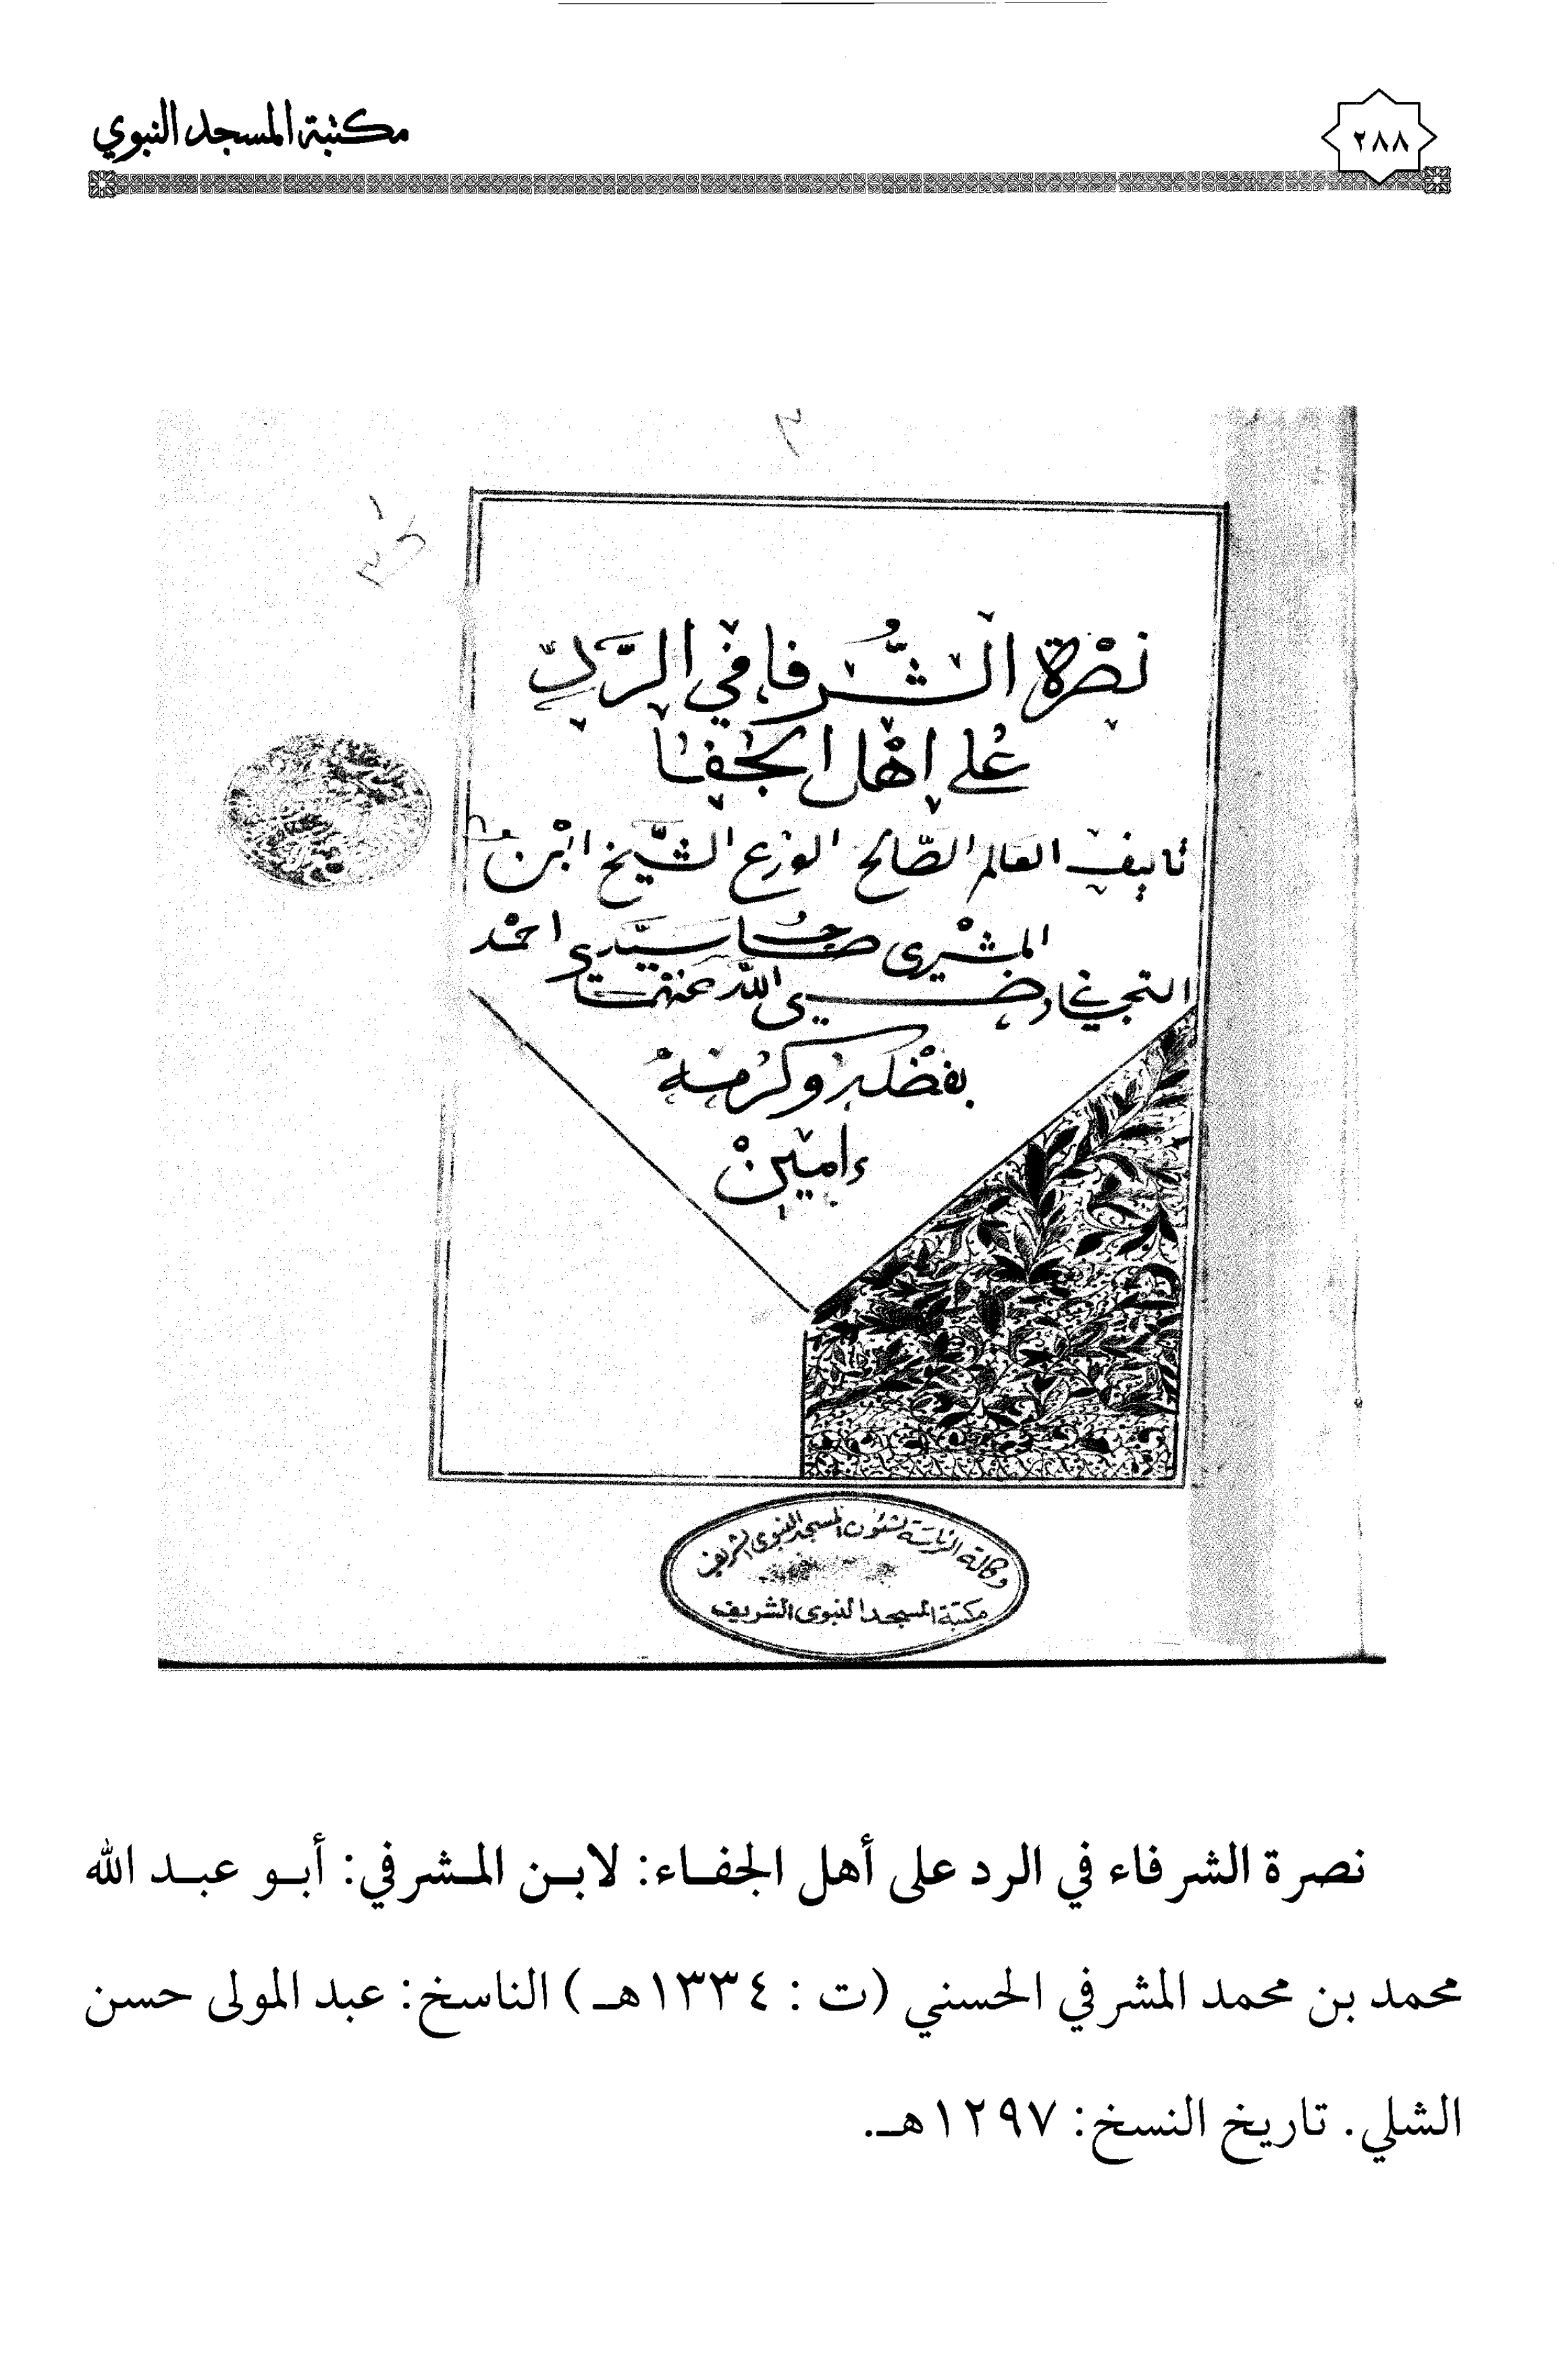 مكتبة المسجد النبوي
٢٨٨
نصرة الشرفا في الرد
على اهل الجفا
تاليف العالم الصالح الورع الشيخ ابن
المشري صاحب سيدي احمد
التجاني رضي الله عنهما
بفضله وكرمه
ءامين
وكالة الرئاسة لشئون المسجد النبوي الشريف
مكتبة المسجد النبوي الشريف
نصرة الشرفاء في الرد على أهل الجفاء: لابن المشرفي: أبو عبد الله
محمد بن محمد المشرفي الحسني (ت : ١٣٣٤هـ) الناسخ: عبد المولى حسن
الشلي. تاريخ النسخ: ١٢٩٧هـ.